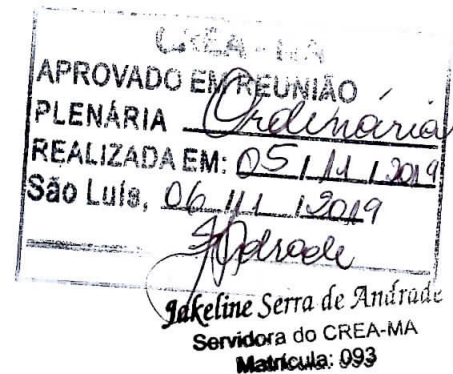 CREA - MA
APROVADO EM REUNIÃO
PLENÁRIA Ordinária
REALIZADA EM: 05 / 11 / 2019
São Luís, 06 / 11 / 2019
JAndrade
Jakeline Serra de Andrade
Servidora do CREA-MA
Matrícula: 093